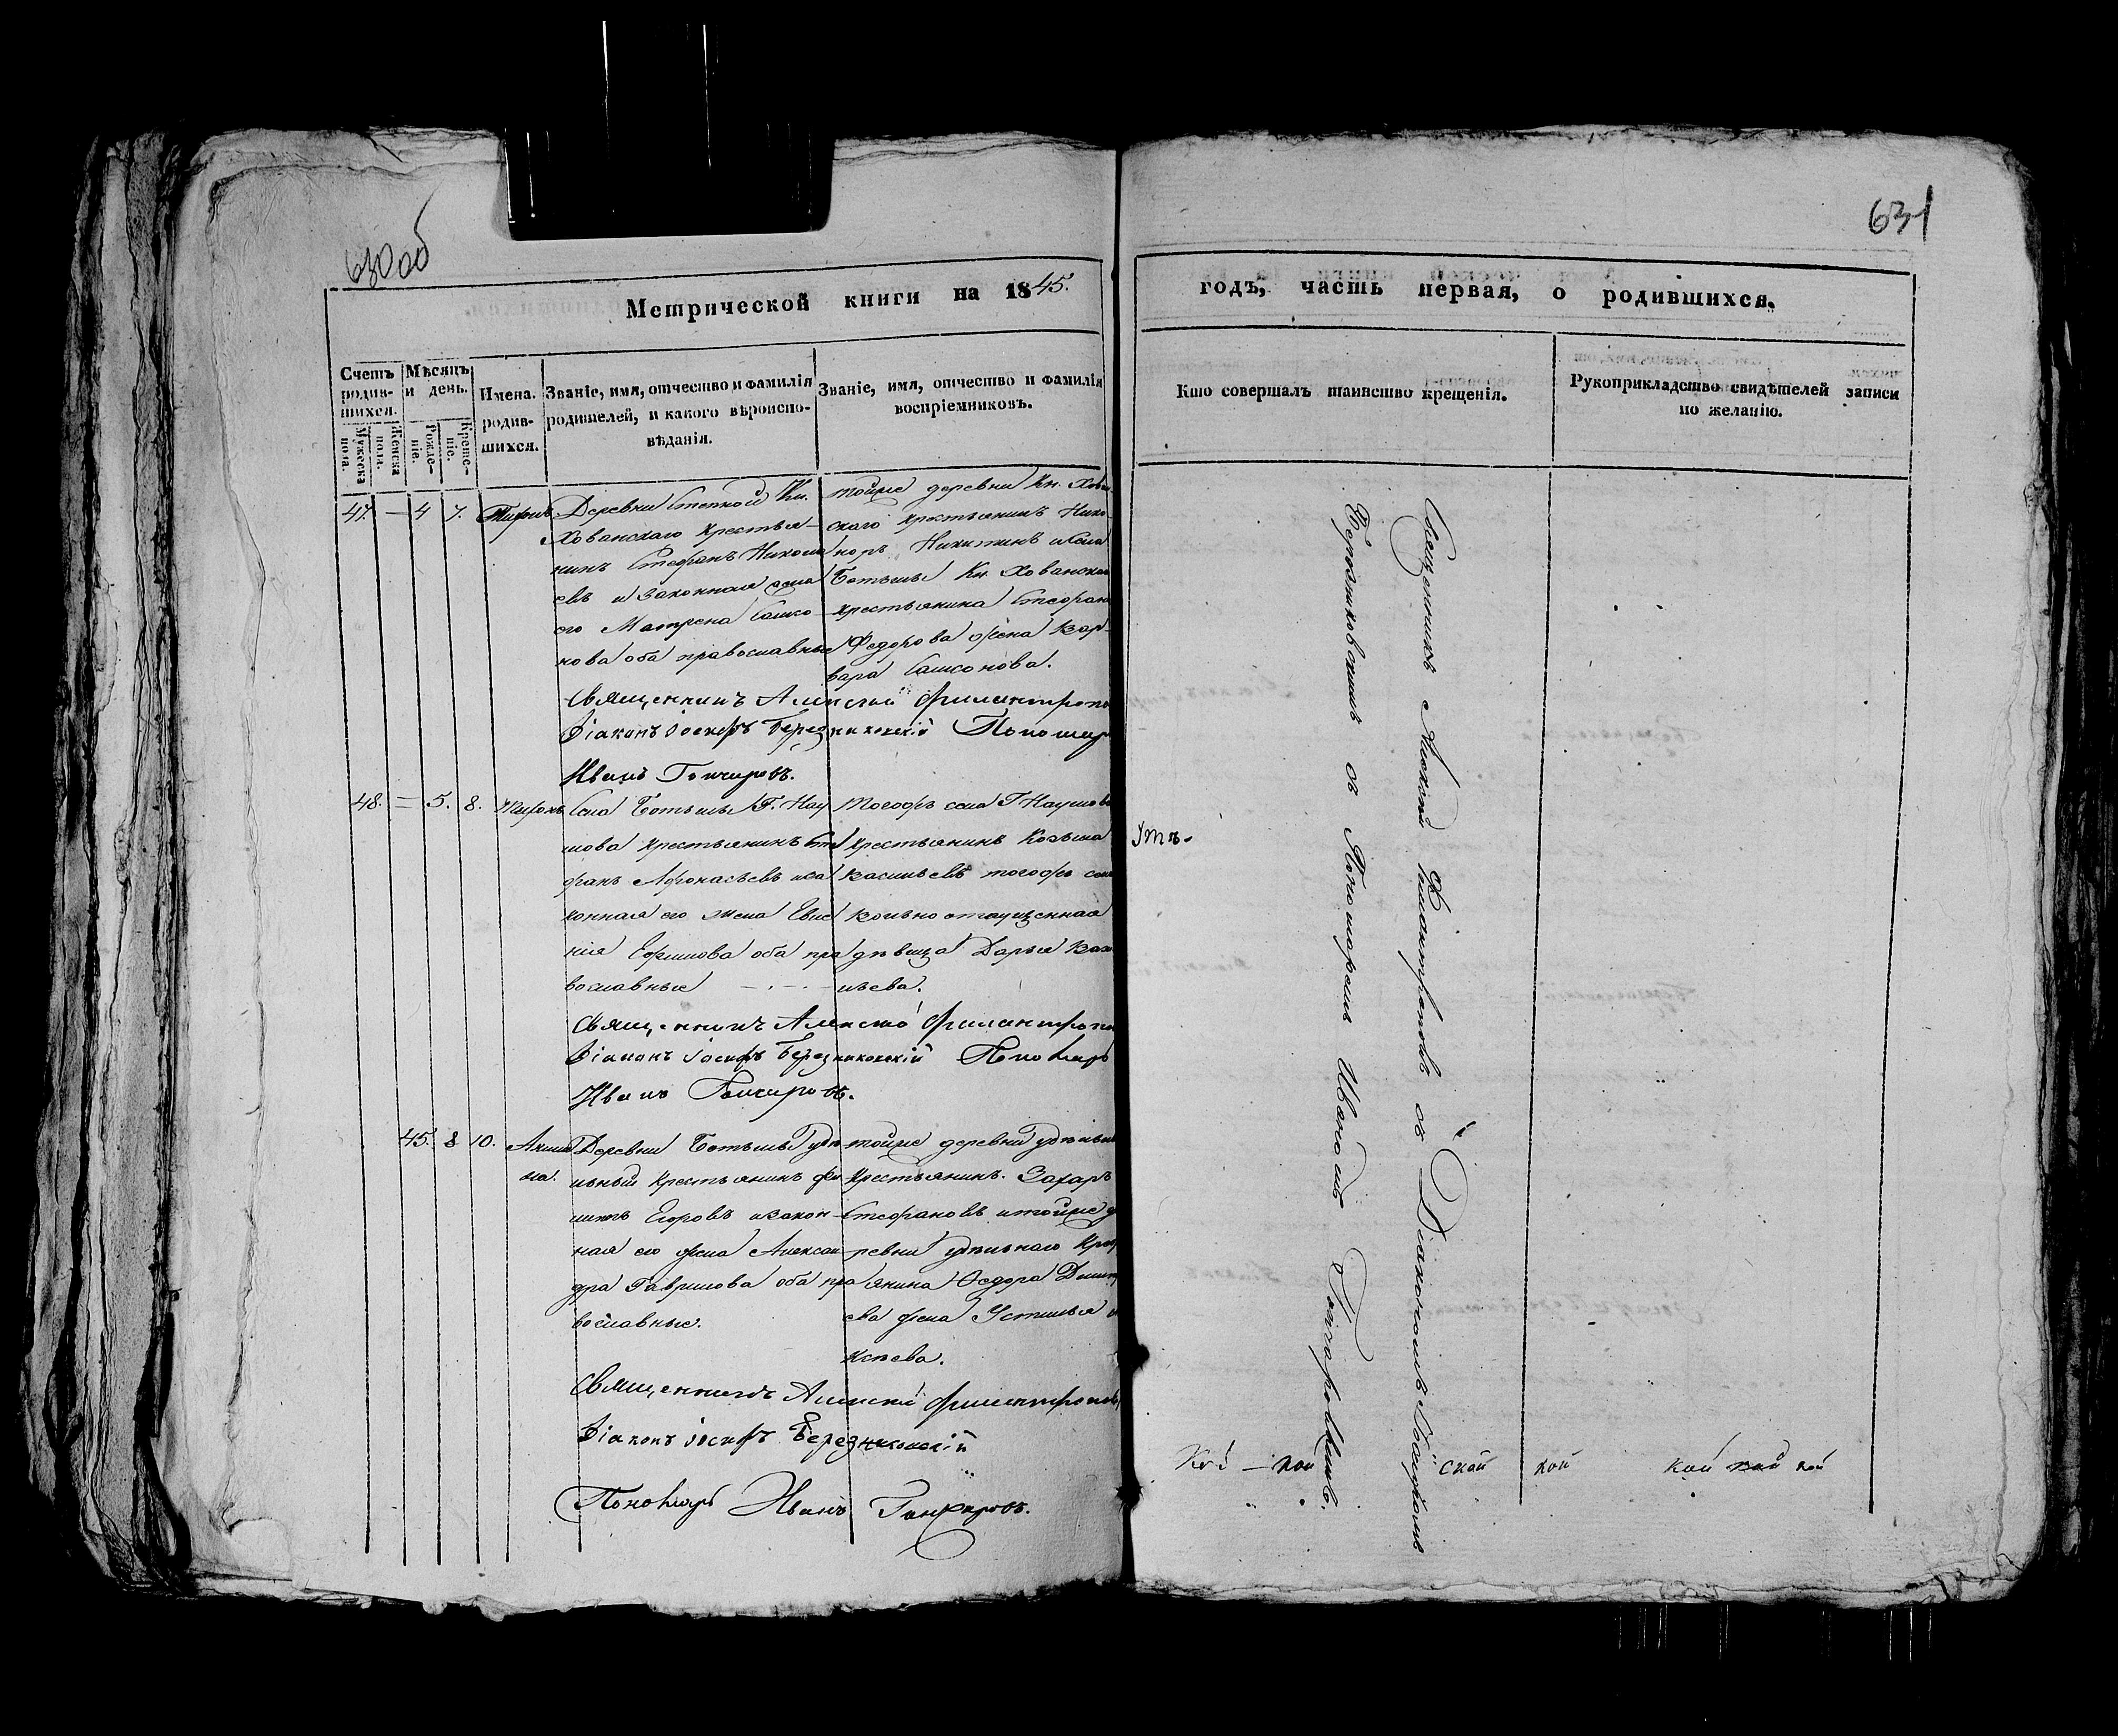 630 об
631
Метрической книги на 1845.
годъ, часть первая, о родившихся.
Счетъ родив-шихся.
Мужеска пола.
Женска пола.
Мѣсяцъ и день.
Рожде-ніе.
Креще-ніе.
Имена родив-шихся.
Званіе, имя, отчество и фамилія
родителей, и какого вѣроиспо-
вѣданія.
Званіе, имя, отчество и фамилія
воспріемниковъ.
Кто совершалъ таинство крещенія.
Рукоприкладство свидѣтелей записи
по желанію.
47. — 4 7.
Деревни Степной Кн.
Хованскаго крестья-
нинъ Стефанъ Никола
евъ и законная жена
его Матрена Самсо
нова оба православные
тойже деревни Кн. Хован
скаго крестьянинъ Ника
норъ Никитинъ и села
Ботьмы Кн. Хованскаго
крестьянина Стефана
Федорова жена Вар-
вара Самсонова.
Священникъ Алексій Филантропо
Діаконъ Іосифъ Березниковскій Пономарь
Иванъ Гончаровъ.
48. = 5. 8.
Села Ботьмы Г. Нау
мова крестьянинъ Сте
фанъ Афонасьевъ и за
конная его жена Евге
нія Ефимова оба пра
вославные
Тогожъ села Г Наумова
крестьянинъ Козьма
Васильевъ тогожъ села
вольноотпущенная
дѣвица Дарья Ва
ильева.
Священникъ Алексій Филантропо
Діаконъ Іосифъ Березниковскій Пономарь
Иванъ Гончаровъ.
45. 8 10.
Акили
на.
Деревни Ботьмы удѣ
льный крестьянинъ Фи
липъ Егоровъ и закон-
ная его жена Алексан
дра Гаврилова оба пра
вославные.
тойже деревни удѣльный
крестьянинъ Захаръ
Стефановъ и тойже де
ревни удѣльнаго крест
янина Ѳедора Дмитр
ева жена Устинья
ксѣева.
Священникъ Алексій Филантроповъ
Діаконъ Іосифъ Березниковскій
Пономарь Иванъ Гончаровъ.
Священникъ Алексій Филантроповъ съ Діакономъ Іосифомъ
Березниковскимъ и Пономаремъ Иваномъ Гончаровымъ.
кой — кой ской кой кой кой кой